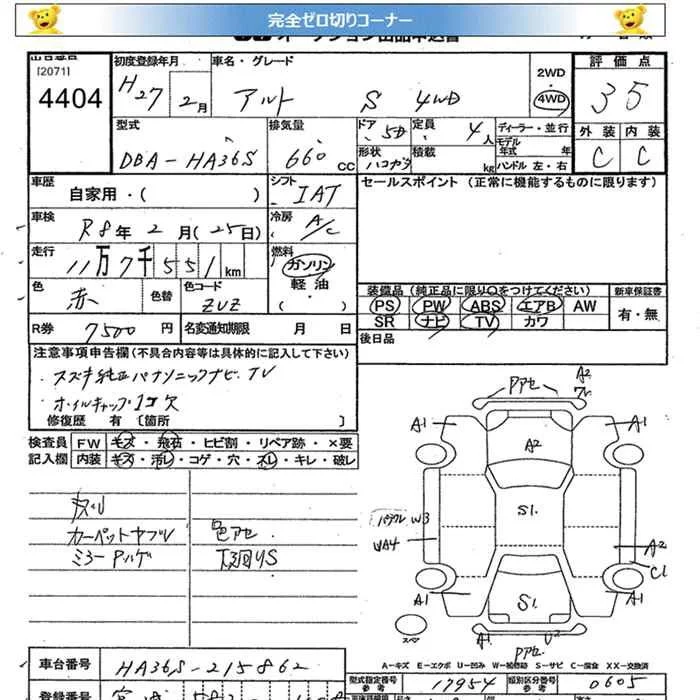 完全ゼロ切りコーナー
オークション出品申込書
出品番号
[2071]
4404
初度登録年月
H27年 2月
車名・グレード
アルト S 4WD
2WD
4WD
評価点
35
型式
DBA-HA36S
排気量
660 CC
ドア
5D
定員
4人
形状
ハコガタ
積載
kg
ディーラー・並行
モデル年式 年
ハンドル 左・右
外装 内装
C C
車歴
自家用・( )
シフト
IAT
セールスポイント (正常に機能するものに限ります)
車検
R8年 2月(25日)
冷房
A/C
走行
11万7千551km
燃料
ガソリン
軽油
( )
色
赤
色替
色コード
ZUZ
装備品(純正品に限り○をつけてください)
新車保証書
PS PW ABS エアB AW
SR ナビ TV カワ
有・無
R券 7500円
名変通知期限 月 日
後日品
注意事項申告欄(不具合内容等は具体的に記入して下さい)
・スズキ純正パナソニックナビ、TV
ホイルキャップ1コ欠
修復歴 有〔箇所 〕
検査員 FW キズ・飛石・ヒビ割・リペア跡・×要
記入欄 内装 キズ・汚レ・コゲ・穴・スレ・キレ・破レ
カーペットヤブレ
色アセ
ミラーPハゲ
下廻りS
Pアセ
A2
A1
A1
A2
W3
S1.
UA4
A2
C1
A1
S1.
A1
スペア
A1
U2
Pアセ
A-キズ E-エクボ U-凹み W-補修跡 S-サビ C-腐食 XX-交換済
車台番号
HA36S-215862
型式指定番号
参考
17954
類別区分番号
参考
0605
登録番号